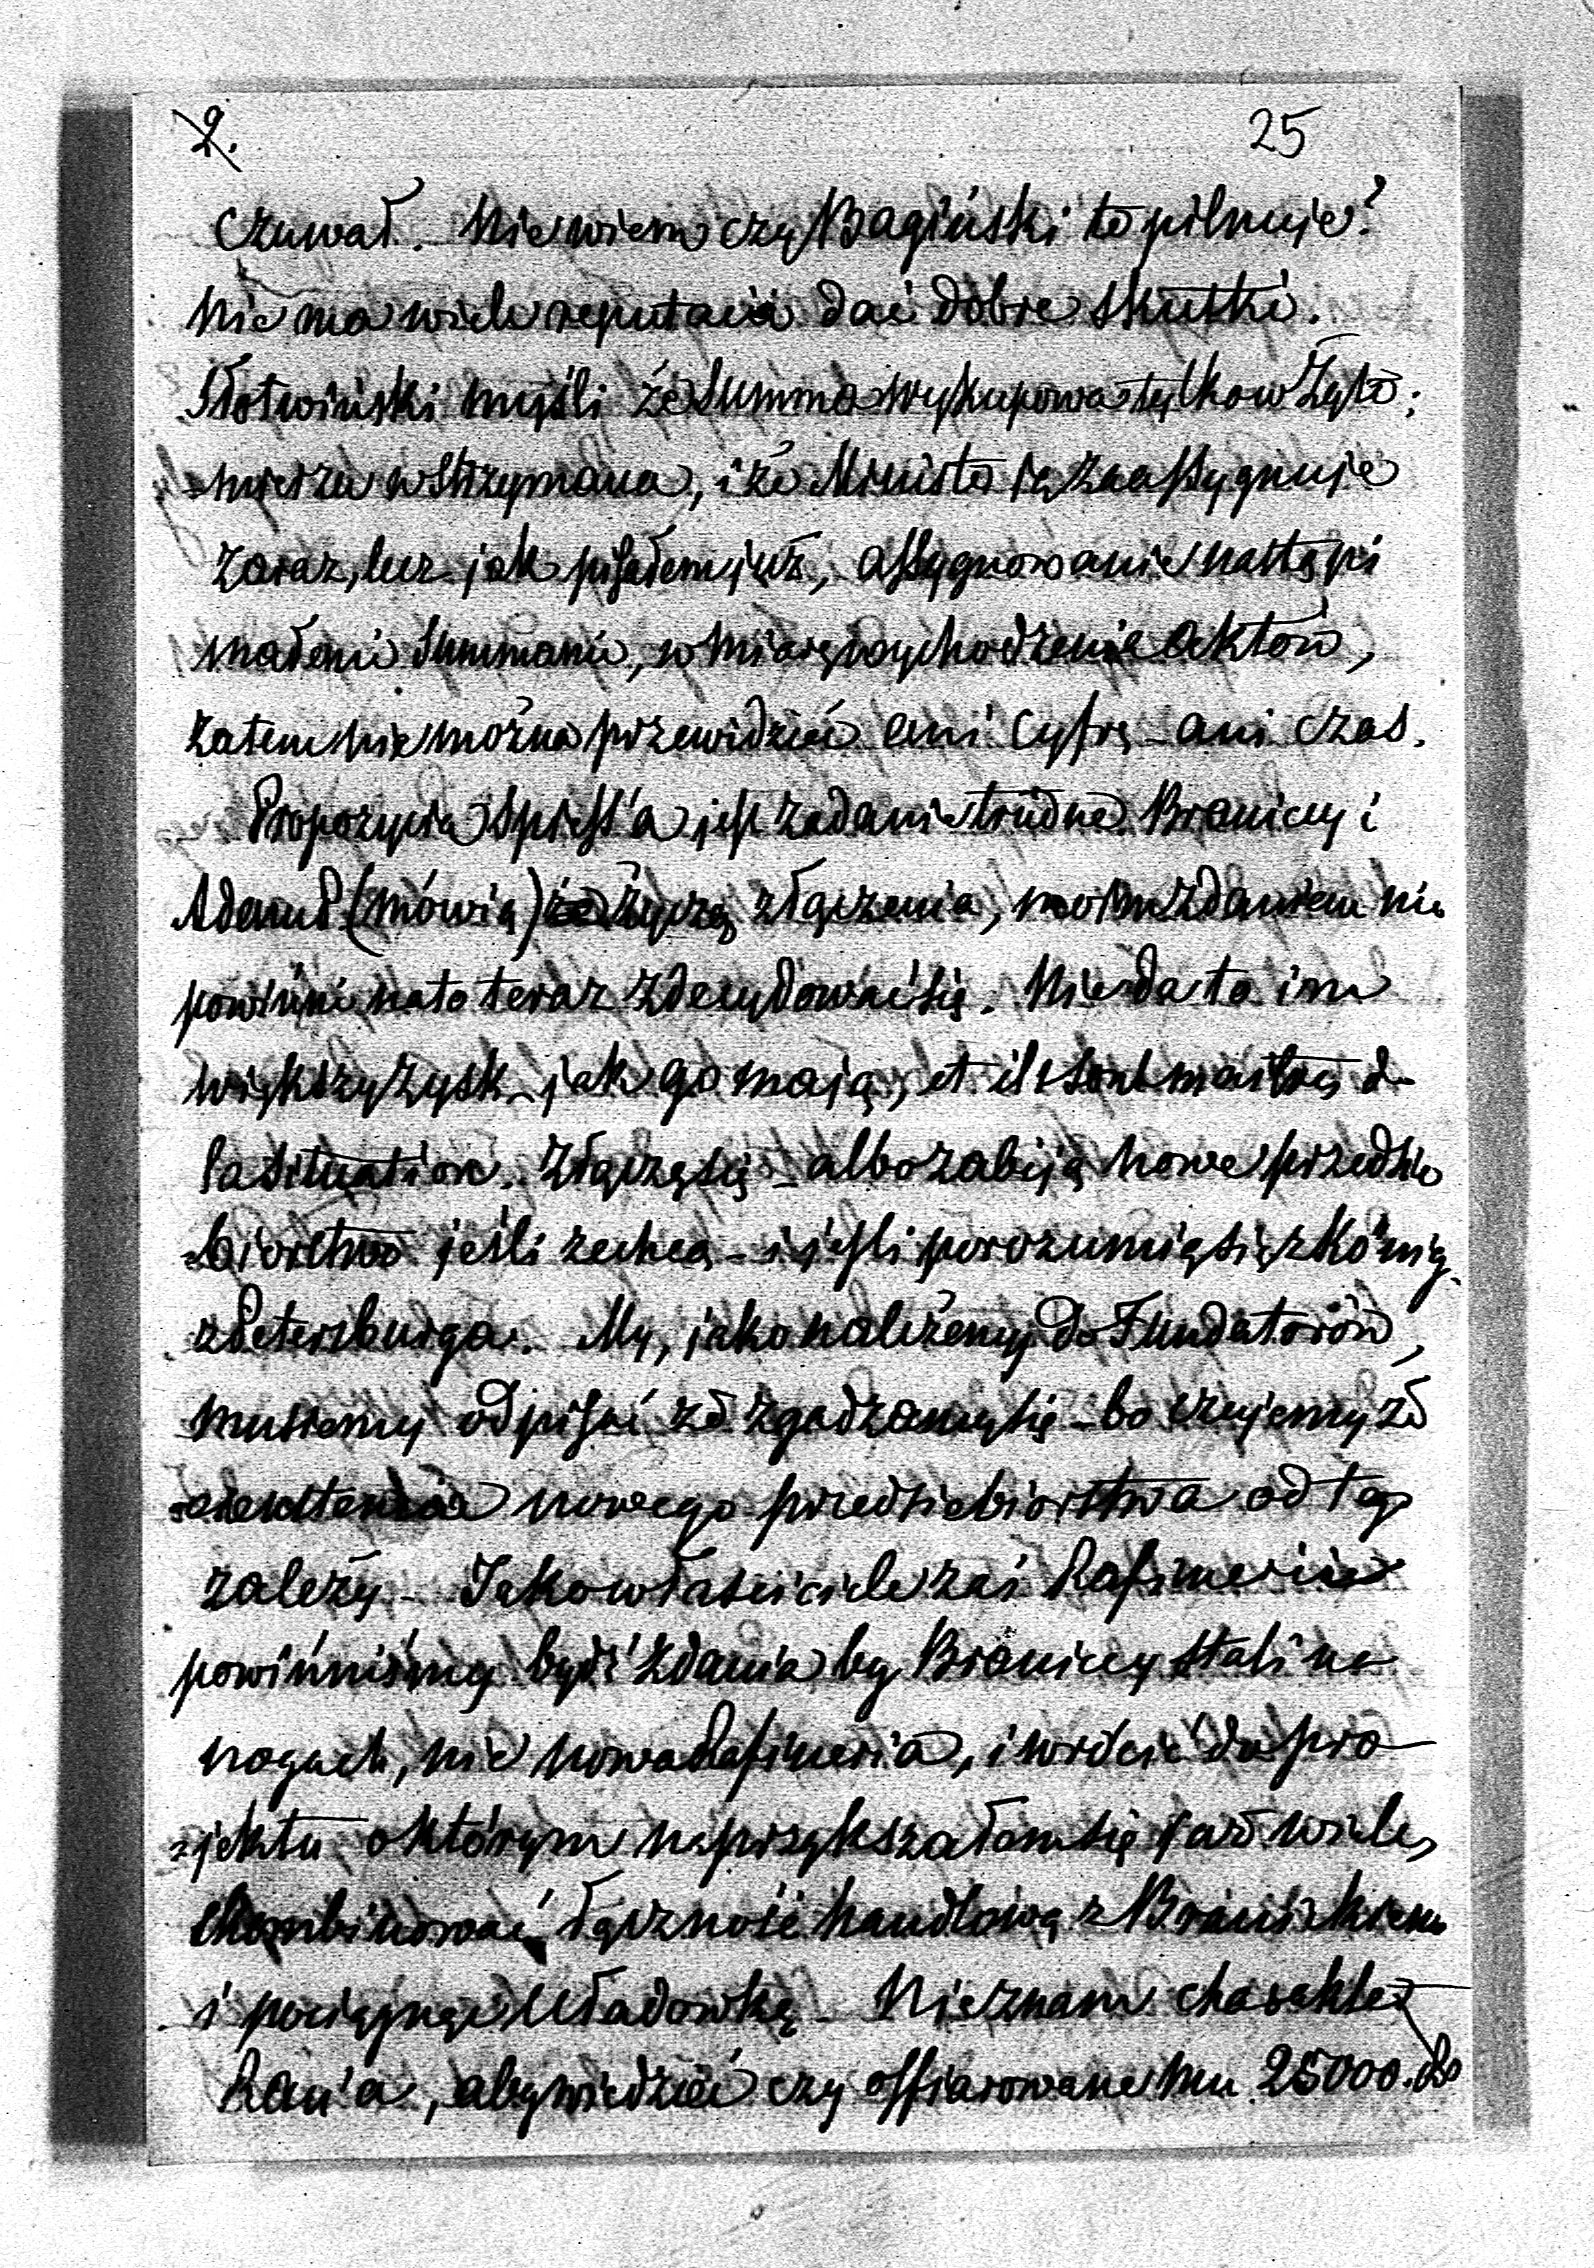 2. 25
czuwał. Nie wiem czy Bagiński to pilnuje?
Nie ma wiele reputacii dać dobre skutki.
Słotwiński myśli że Summa wykupowa tylko w Żyto:
=mierzu wstrzymana, i że Minister ją zaassygnuje
zaraz, lecz jak pisałem już, assygnowanie nastąpi
małemi Summami, w miarę wychodzenia aktów,
zatem nie można przewidzieć ani cyfrę – ani czas.
Propozycia Spiess'a jest zadanie trudne. Braniccy i
Adam P. (mówią) życzą złączenia, moim zdaniem nie
powinni na to teraz zdecydować się. Nie da to im
większy zysk jak go mają, et ils sont maitres de
la situation. Złączą się – albo zabiją nowe przedsię
=biorstwo jeśli zechcą – i jeśli porozumią się z König
z Petersburga. My, jako należemy do Fundatorów,
musiemy odpisać że zgadzamy się – bo czujemy że
nowego przedsiebiorstwa od tego
zależy – Jako właściciele zaś Rafinerii
powinniśmy być zdania by Braniccy stali na
nogach, nie nowa Rafineria, i wrócić do pro
=jektu o którym naprzykszałem się tak wiele,
skombinować łączność handlową z Branickiem
i pociągnąć Uładowkę – Nie znam charakter
Rau'a, aby wiedzieć czy offiarowane mu 25000. Rs